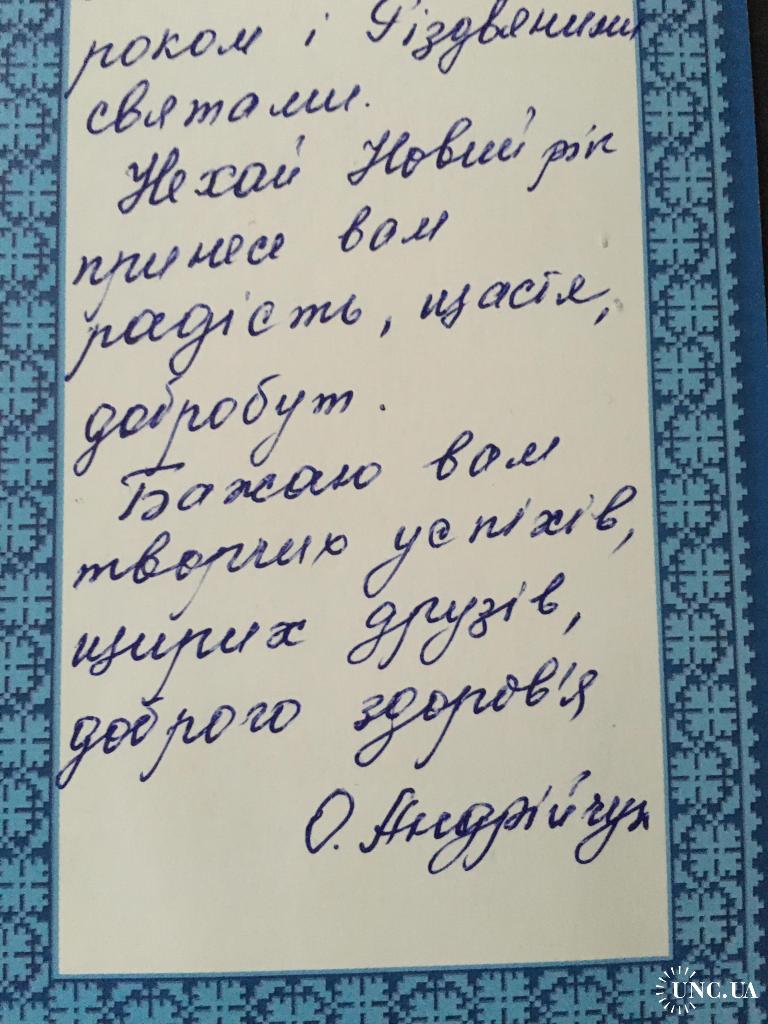 роком і Різдвяними
святами.
Нехай Новий рік
принесе вам
радість, щастя,
добробут.
Бажаю вам
творчих успіхів,
щирих друзів,
доброго здоров'я
О. Андрійчук
UNC.UA